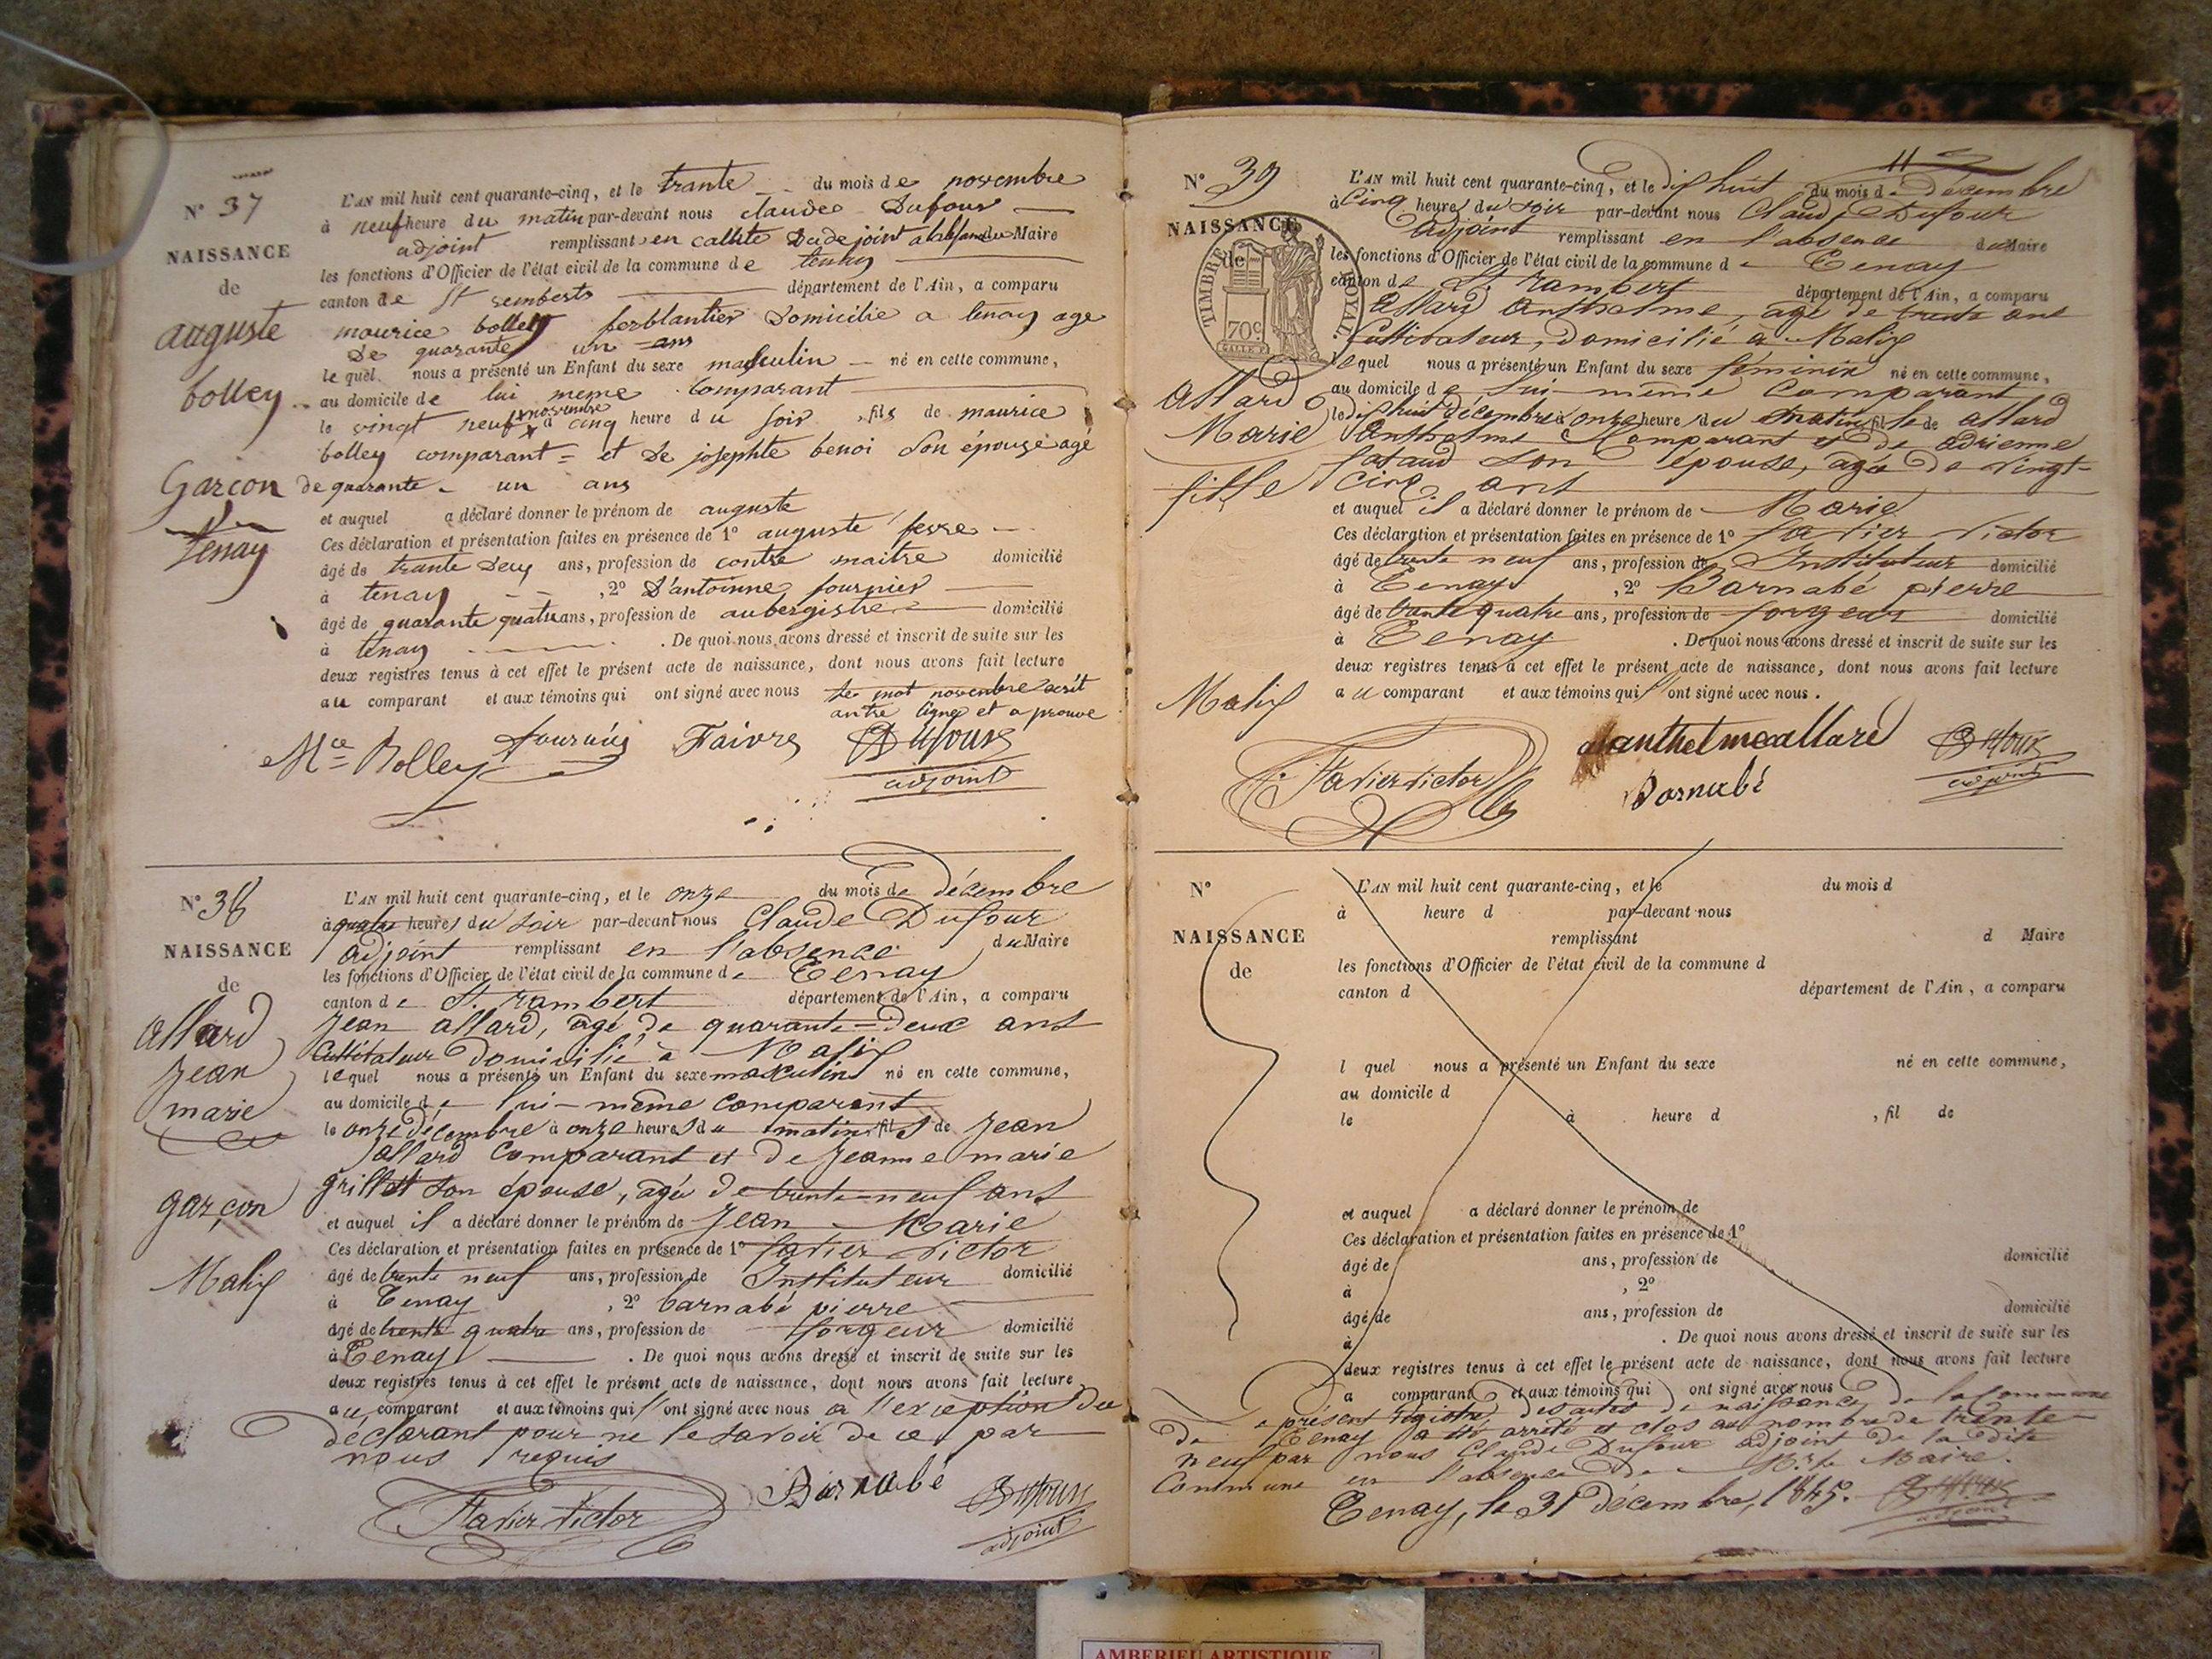 N° 37
NAISSANCE
de
auguste
bolley
Garcon
tenay
L'AN mil huit cent quarante-cinq, et le trante du mois de novembre
à neuf heure du matin par-devant nous claude Dufour
adjoint remplissant en Maire
les fonctions d'Officier de l'état civil de la commune de tenay
canton de St département de l'Ain, a comparu
maurice bolley ferblantier Domicilie a tenay age
De quarante un ans
le quel nous a présenté un Enfant du sexe masculin né en cette commune,
au domicile de lui meme Comparant
le vingt neuf novembre à cinq heure du soir, fils de maurice
bolley comparant = et De josephte benoi son épouse agé
de quarante - un ans
et auquel a déclaré donner le prénom de auguste
Ces déclaration et présentation faites en présence de 1° auguste
âgé de trante Deux ans, profession de contre maitre domicilié
à tenay, 2° D'antoinne fournier
âgé de quarante quatre ans, profession de aubergiste domicilié
à tenay. De quoi nous avons dressé et inscrit de suite sur les
deux registres tenus à cet effet le présent acte de naissance, dont nous avons fait lecture
au comparant et aux témoins qui ont signé avec nous le mot novembre écrit
antre ligne et a prouve
Mce Bolley fournier Faivre Dufour
adjoint
N° 38
NAISSANCE
de
allard
Jean
marie
garçon
Malix
L'AN mil huit cent quarante-cinq, et le onze du mois de Décembre
à quatre heures du soir par-devant nous Claude Dufour
adjoint remplissant en l'absence du Maire
les fonctions d'Officier de l'état civil de la commune de Tenay
canton de St. Rambert département de l'Ain, a comparu
Jean allard, agé de quarante-deux ans
Cultivateur Domicilié à Malix
lequel nous a présenté un Enfant du sexe masculin né en cette commune,
au domicile de lui-même Comparant
le onze décembre à onze heures du matin fils de Jean
allard Comparant et de Jeanne marie
grillet son épouse, agée de trente-neuf ans
et auquel il a déclaré donner le prénom de Jean Marie
Ces déclaration et présentation faites en présence de 1° Favier Victor
âgé de trente neuf ans, profession de Instituteur domicilié
à Tenay, 2° barnabé pierre
âgé de trente quatre ans, profession de forgeur domicilié
à Tenay. De quoi nous avons dressé et inscrit de suite sur les
deux registres tenus à cet effet le présent acte de naissance, dont nous avons fait lecture
au comparant et aux témoins qui ont signé avec nous a l'exception du
déclarant pour ne le savoir de ce par
nous requis
Favier Victor Barnabé Dufour
adjoint
N° 39
NAISSANCE
de
TIMBRE ROYAL
70c
Allard
Marie
fille
Malix
L'AN mil huit cent quarante-cinq, et le dix huit du mois de Décembre
à Cinq heures du soir par-devant nous Claude Dufour
adjoint remplissant en l'absence du Maire
les fonctions d'Officier de l'état civil de la commune de Tenay
canton de St. Rambert département de l'Ain, a comparu
Allard Anthelme, agé de trente ans
Cultivateur, Domicilié à Malix
lequel nous a présenté un Enfant du sexe féminin né en cette commune,
au domicile de lui-même Comparant
le dix huit décembre à onze heure du matin fille de allard
Anthelme Comparant et de adrienne
son épouse, agée de vingt-
cinq ans
et auquel il a déclaré donner le prénom de Marie
Ces déclaration et présentation faites en présence de 1° favier Victor
âgé de trente neuf ans, profession de Instituteur domicilié
à Tenay, 2° Barnabé pierre
âgé de trente quatre ans, profession de forgeur domicilié
à Tenay. De quoi nous avons dressé et inscrit de suite sur les
deux registres tenus à cet effet le présent acte de naissance, dont nous avons fait lecture
au comparant et aux témoins qui ont signé avec nous.
anthelme allard Dufour
adjoint
Favier victor Barnabé
N°
NAISSANCE
de
L'AN mil huit cent quarante-cinq, et le du mois d
à heure d par-devant nous
remplissant d Maire
les fonctions d'Officier de l'état civil de la commune d
canton d département de l'Ain, a comparu
l quel nous a présenté un Enfant du sexe né en cette commune,
au domicile d
le à heure d , fil de
et auquel a déclaré donner le prénom de
Ces déclaration et présentation faites en présence de 1°
âgé de ans, profession de domicilié
à , 2°
âgé de ans, profession de domicilié
à . De quoi nous avons dressé et inscrit de suite sur les
deux registres tenus à cet effet le présent acte de naissance, dont nous avons fait lecture
a comparant et aux témoins qui ont signé avec nous
Le présent registre des actes de naissance de la Commune
de Tenay a été arrêté et clos au nombre de trente-
neuf par nous Claude Dufour adjoint de la dite
Commune en l'absence de Mr. le Maire.
Tenay, le 31 décembre, 1845. Dufour
adjoint
AMBERIEU ARTISTIQUE